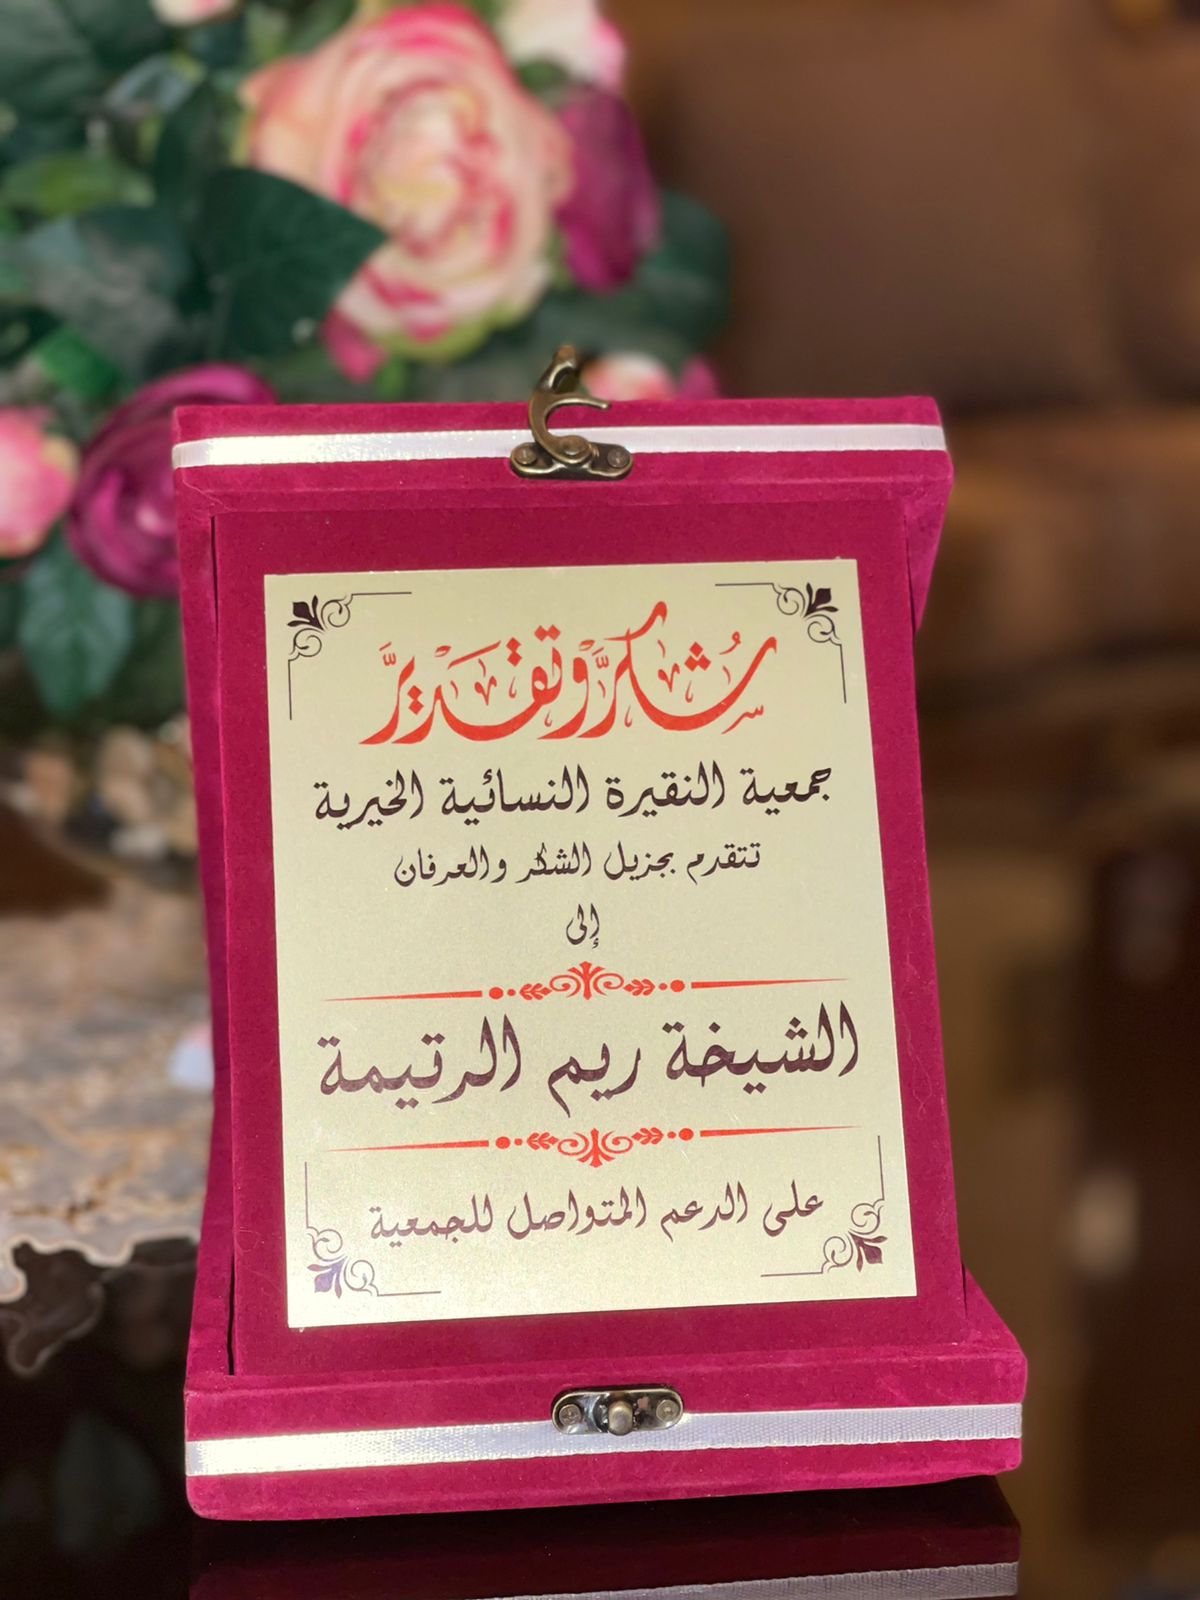 شُكرٌ وتقديرٌ
جمعية النقيرة النسائية الخيرية
تتقدم بجزيل الشكر والعرفان
إلى
الشيخة ريم الرتيمة
على الدعم المتواصل للجمعية